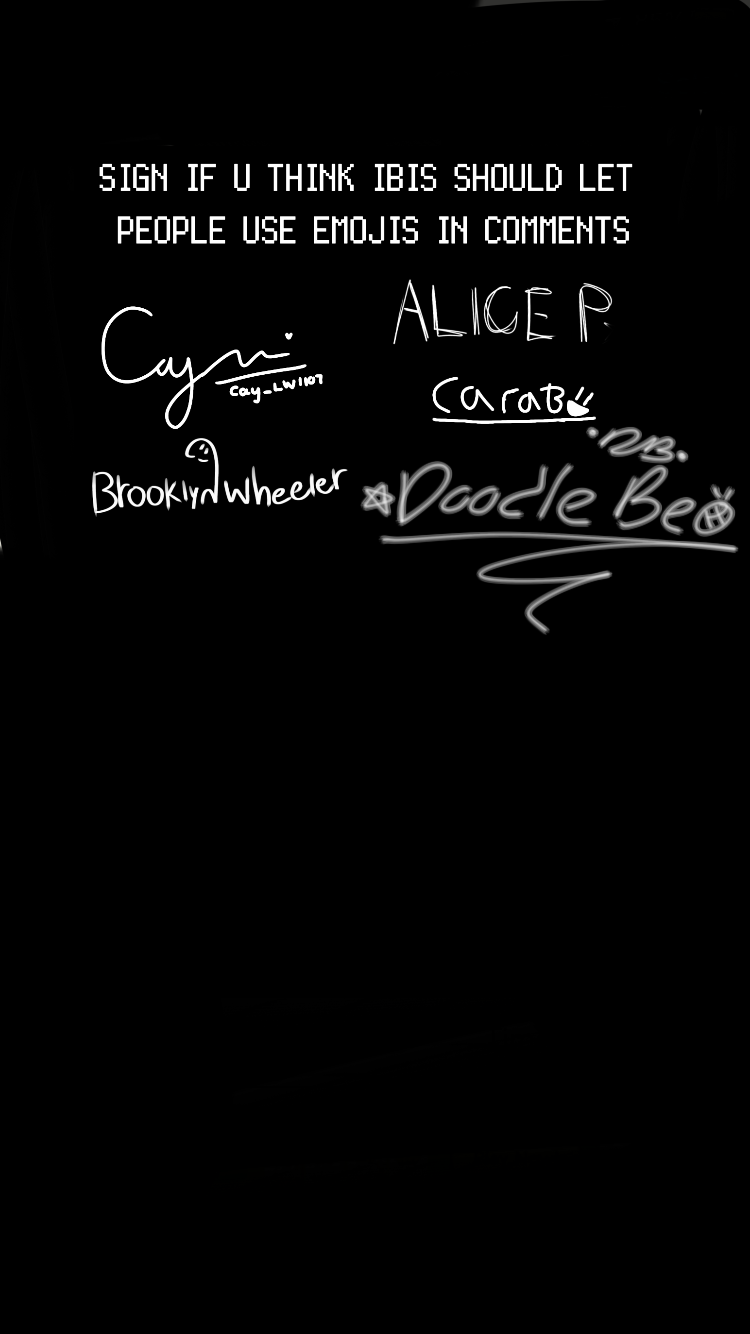 SIGN IF U THINK IBIS SHOULD LET
PEOPLE USE EMOJIS IN COMMENTS
ALICE P.
Cay_LW1107
Carab
Brooklyn Wheeler
Doodle Be